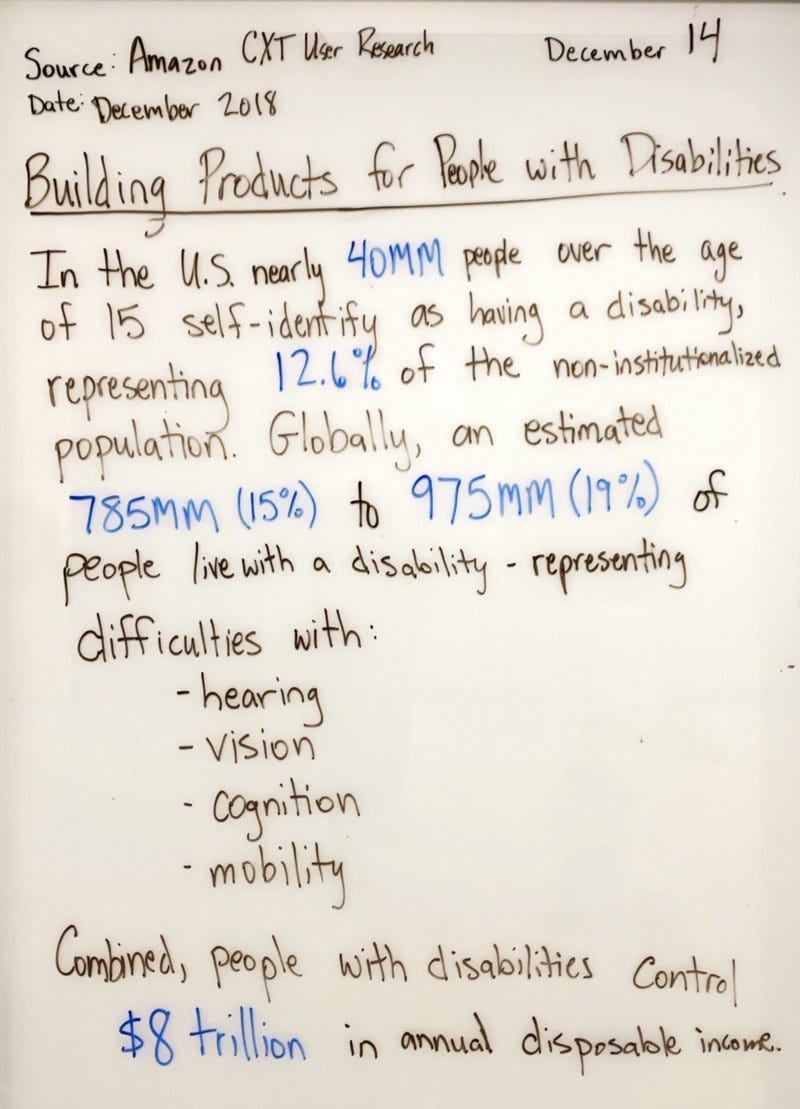 Source: Amazon CXT User Research December 14
Date: December 2018
Building Products for People with Disabilities
In the U.S. nearly 40MM people over the age
of 15 self-identify as having a disability,
representing 12.6% of the non-institutionalized
population. Globally, an estimated
785MM (15%) to 975MM (19%) of
people live with a disability - representing
difficulties with:
- hearing
- vision
- cognition
- mobility
Combined, people with disabilities control
$8 trillion in annual disposable income.